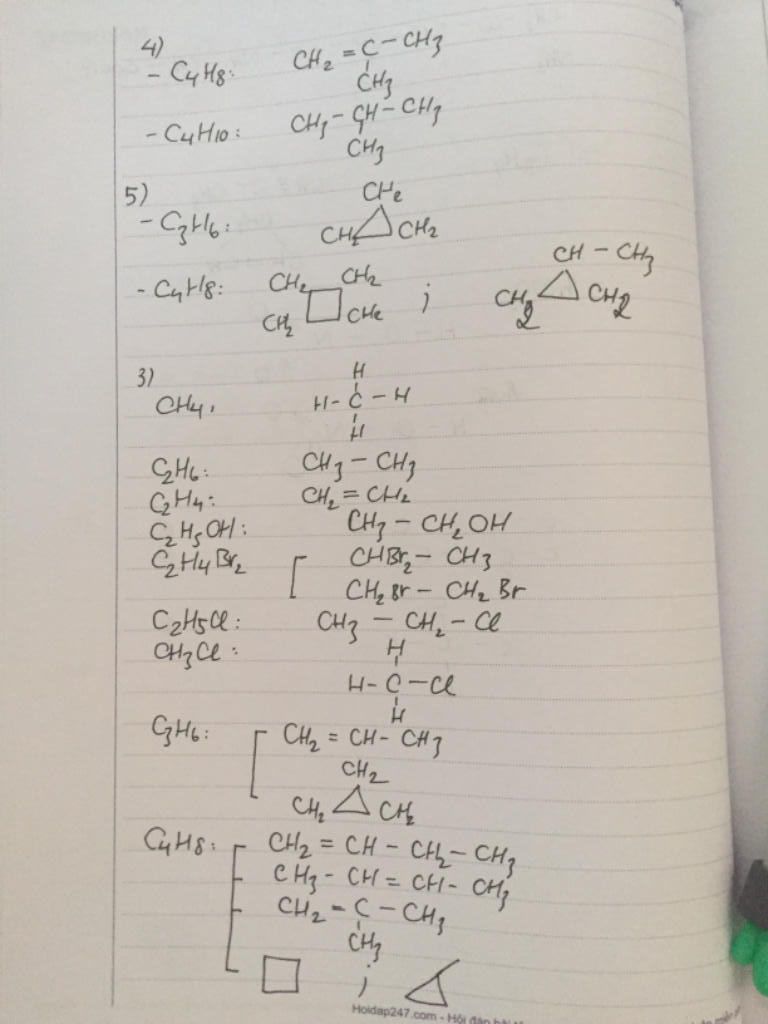 4)
- C4H8: CH2 = C - CH3
CH3
- C4H10: CH3 - CH - CH3
CH3
5)
CH2
- C3H6: CH2 CH2
CH - CH3
- C4H8: CH2 CH2 ;
CH2 CH2 CH2 CH2
3)
H
CH4, H - C - H
H
C2H6: CH3 - CH3
C2H4: CH2 = CH2
C2H5OH: CH3 - CH2OH
C2H4Br2 [ CHBr2 - CH3
CH2Br - CH2Br
C2H5Cl: CH3 - CH2 - Cl
CH3Cl: H
H - C - Cl
H
C3H6: [ CH2 = CH - CH3
CH2
CH2 CH2
C4H8: [ CH2 = CH - CH2 - CH3
CH3 - CH = CH - CH3
CH2 = C - CH3
CH3
;
Hoidap247.com - Hỏi đáp bài